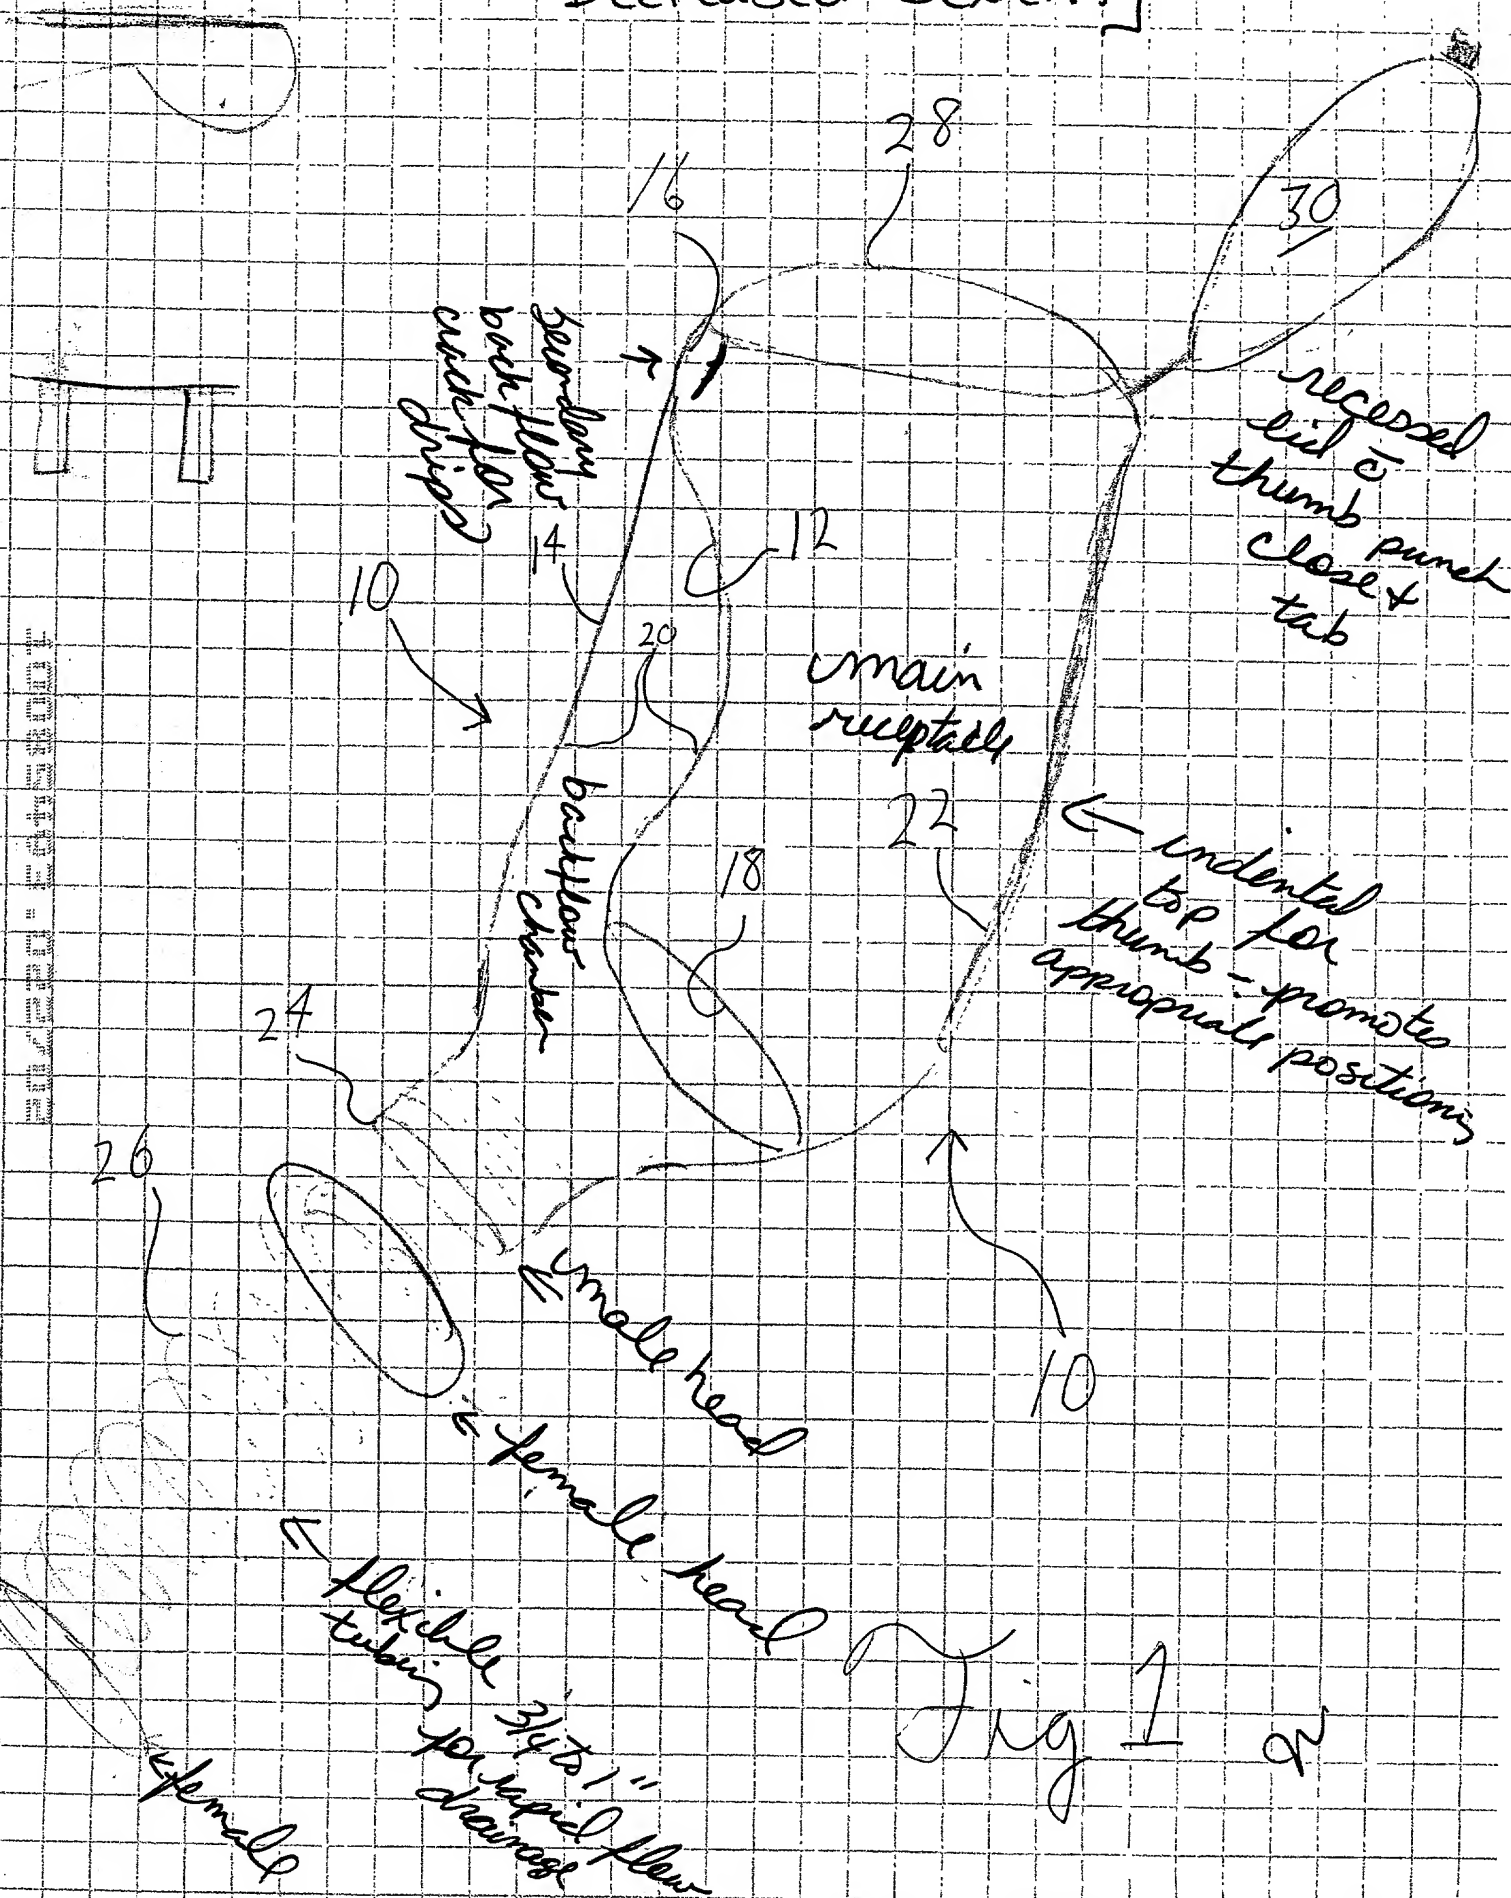 28
16
30
Secondary
back flow
crack for
drips
recessed
lid c̄
thumb punch
close &
tab
14
12
10
20
main
receptacle
22
indented
top for
thumb - promotes
appropriate positioning
18
backflow
chamber
24
26
male head
10
female head
flexible 3/4 to 1"
tubing for rapid flow
drainage
female
Fig 1